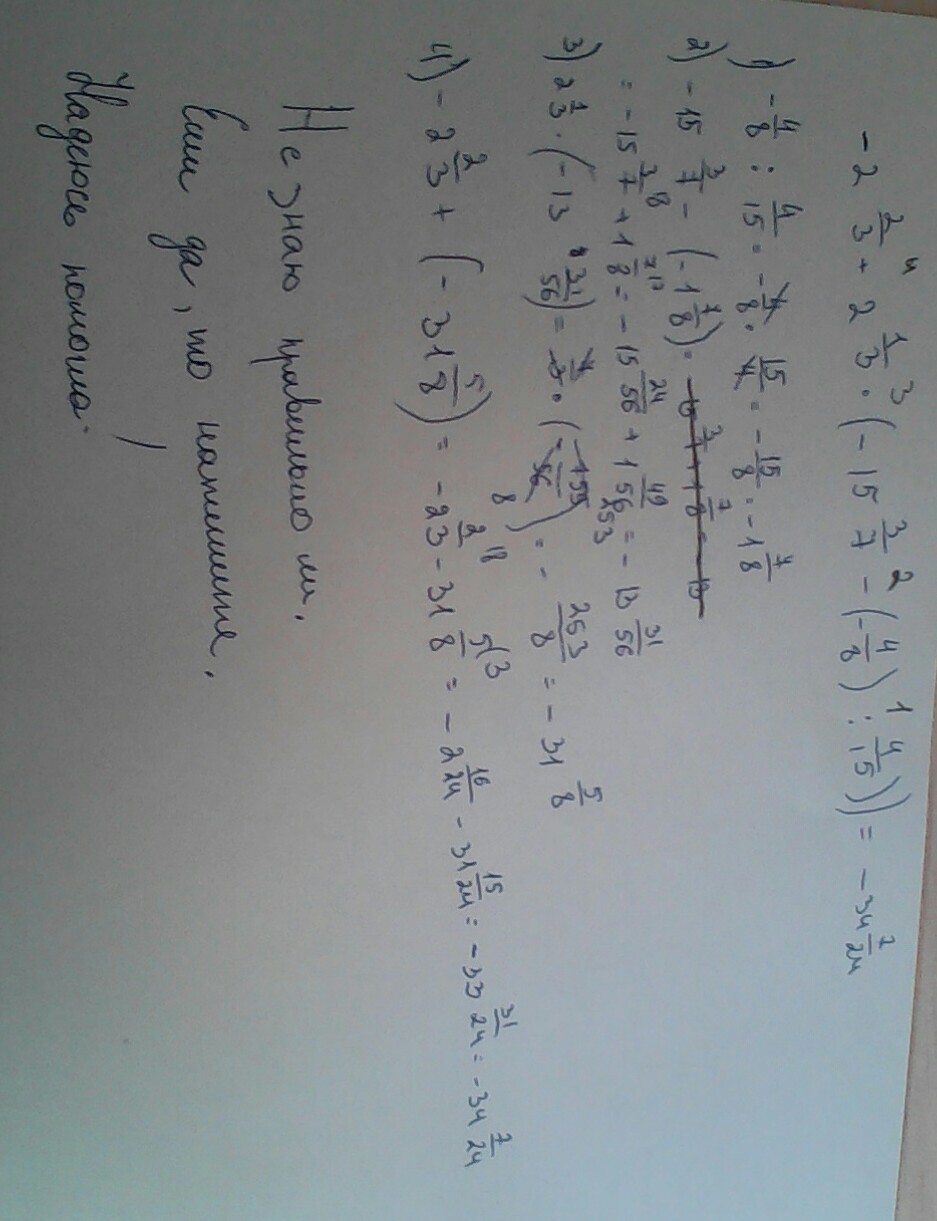 -2 2/3 + 2 1/3 · (-15 3/7 - (-4/8) : 4/15)) = -34 7/24
4 3 2 1
1) -4/8 : 4/15 = -4/8 · 15/4 = -15/8 = -1 7/8
2) -15 3/7 - (-1 7/8) =
= -15 3/7 + 1 7/8 = -15 24/56 + 1 49/56 = -13 31/56
3) 2 1/3 · (-13 31/56) = · = -253/8 = -31 5/8
4) -2 2/3 + (-31 5/8) = -2 2/3 - 31 5/8 = -2 16/24 - 31 15/24 = -33 31/24 = -34 7/24
Не знаю правильно ли.
Если да, то напишите.
Надеюсь помогла.